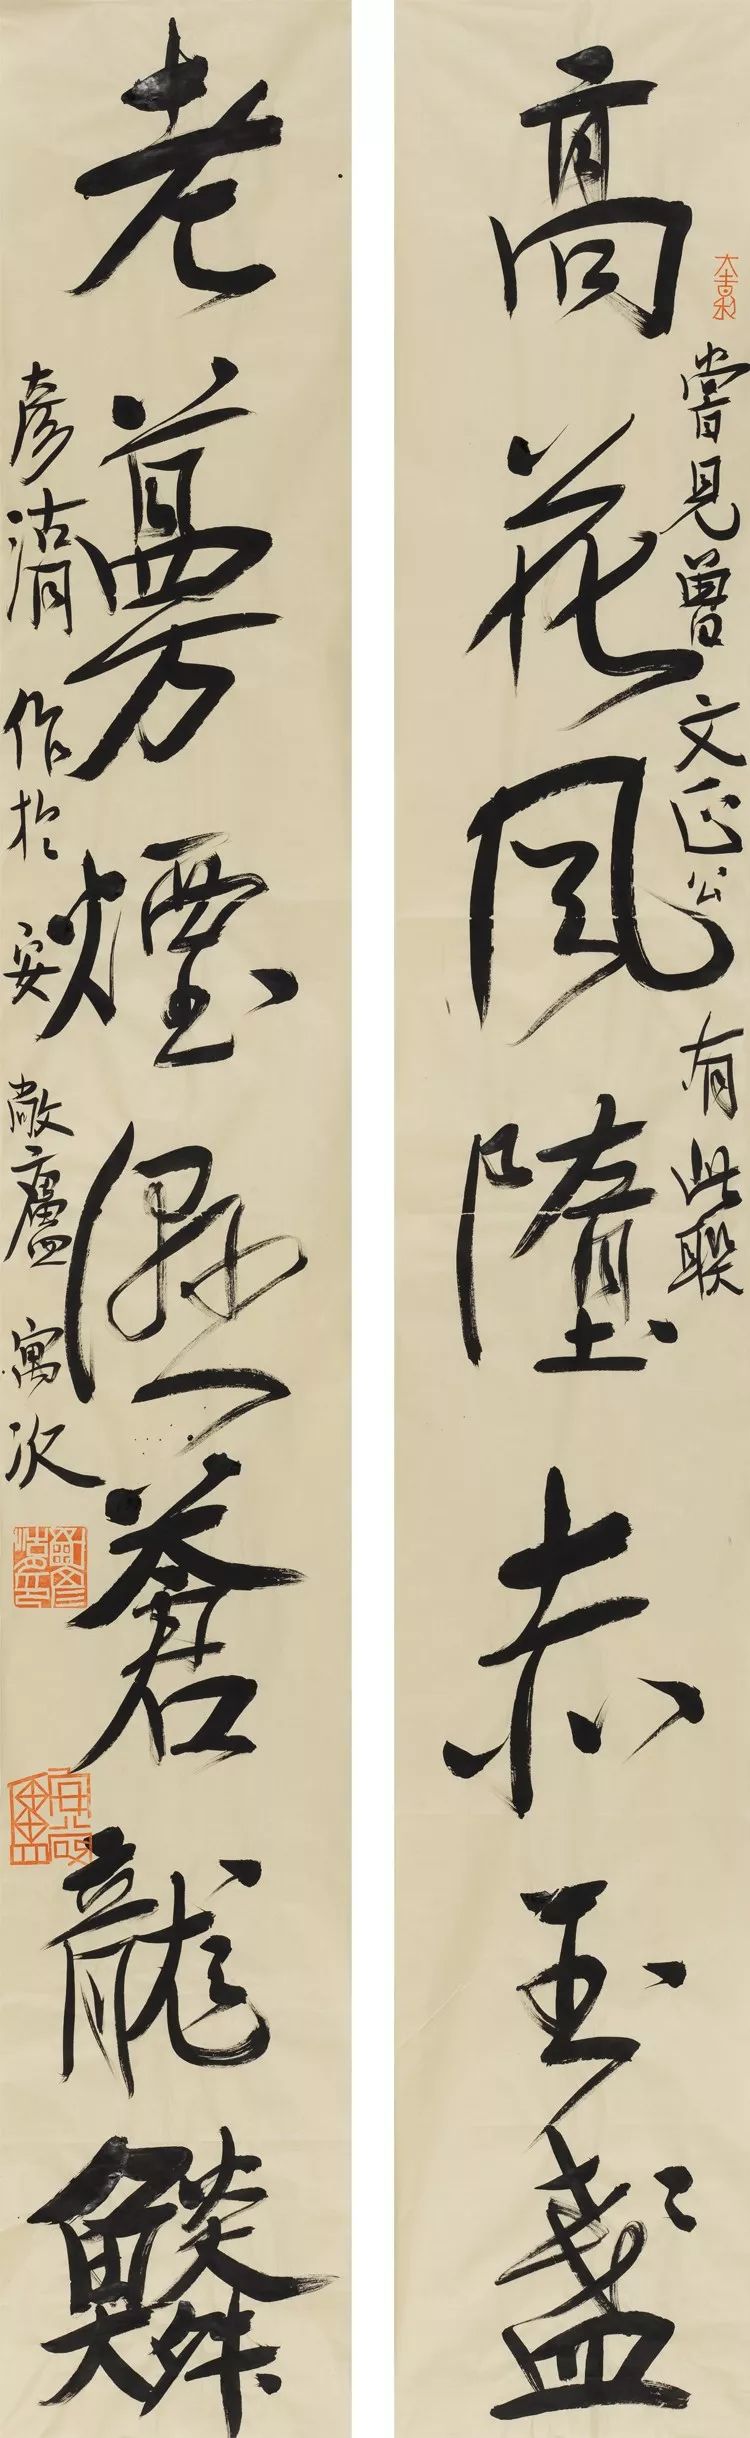 高花風墮赤玉盞
嘗見曾文正公有此聯
老蔓煙濕蒼龍鱗
彥湑作於安敞廬寓次